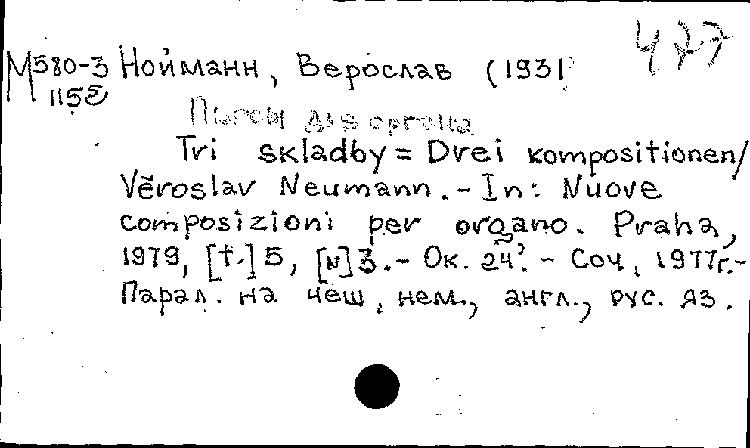 477
М580-3 Нойманн, Верослав (1931
115б
Пьесы для органа
Tri skladby = Drei kompositionen/
Věroslav Neumann. - In: Nuove
composizioni per organo. Praha,
1979, [t.] 5, [N] 3. - Ок. 24? - Соч. 1977г. -
Парал. на чеш, нем., англ., рус. яз.